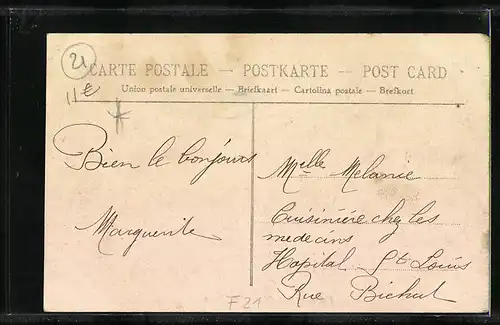 21
CARTE POSTALE — POSTKARTE — POST CARD
11€
Union postale universelle — Briefkaart — Cartolina postale — Brefkort
Bien le bonjours
Marguerite
Melle Melanie
Cuisinière chez les
medecins
Hopital St Louis
Rue Bichat
F21